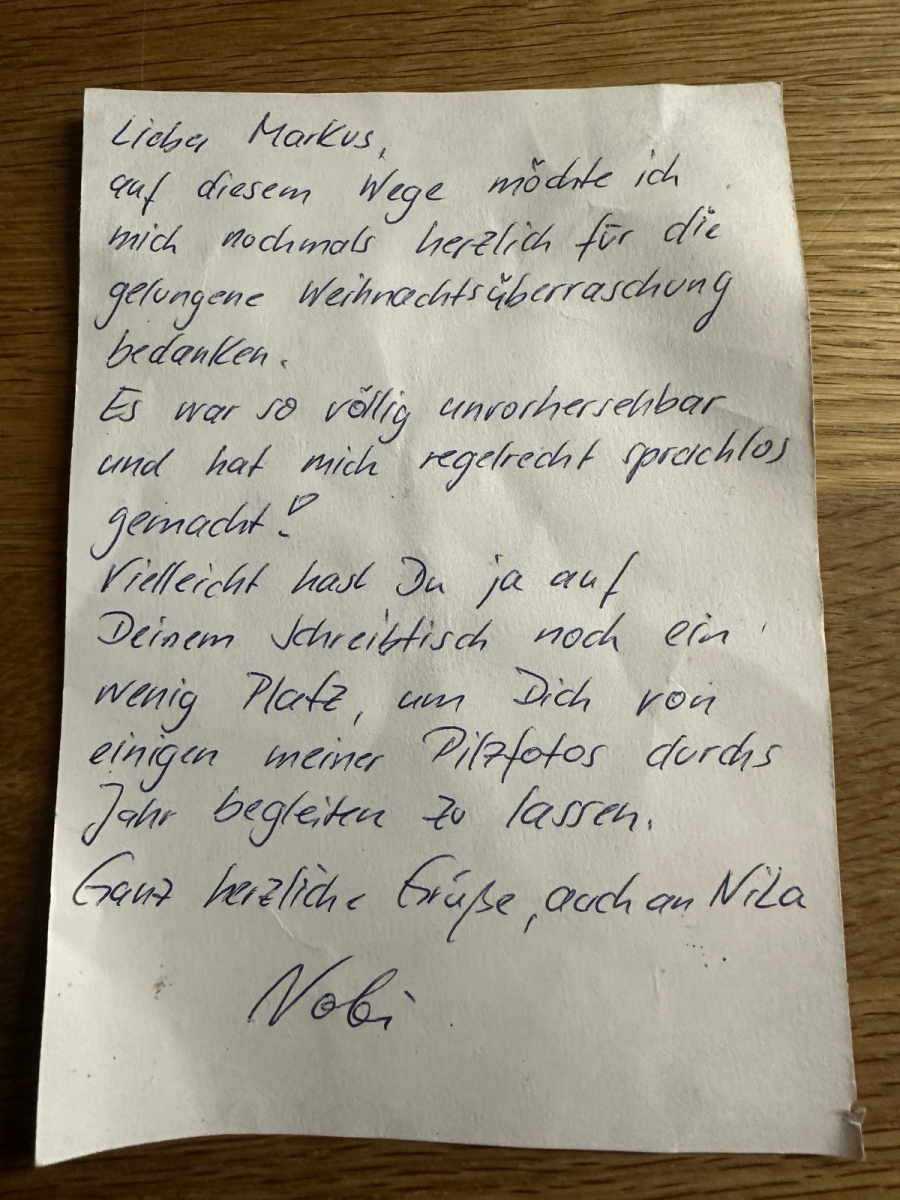 Lieber Markus,
auf diesem Wege möchte ich
mich nochmals herzlich für die
gelungene Weihnachtsüberraschung
bedanken.
Es war so völlig unvorhersehbar
und hat mich regelrecht sprachlos
gemacht!
Vielleicht hast Du ja auf
Deinem Schreibtisch noch ein
wenig Platz, um Dich von
einigen meiner Pilzfotos durchs
Jahr begleiten zu lassen.
Ganz herzliche Grüße, auch an Nila
Nobi